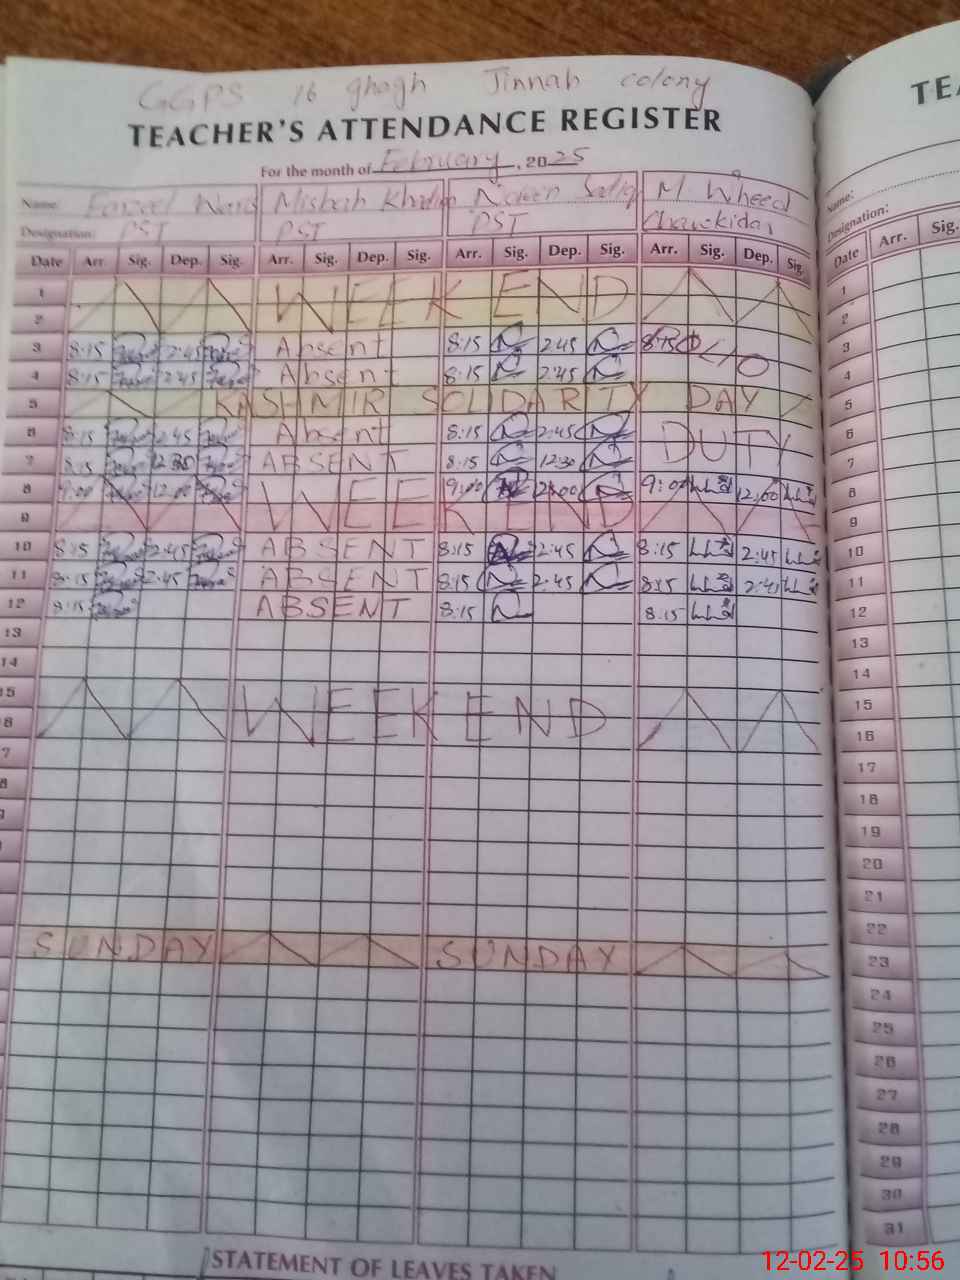 GGPS 16 ghagh Jinnah colony
TEACHER'S ATTENDANCE REGISTER
For the month of February, 2025
Name: Misbah Khadim M. Wheed
Designation: PST PST PST Chawkidar
Date Arr. Sig. Dep. Sig. Arr. Sig. Dep. Sig. Arr. Sig. Dep. Sig. Arr. Sig. Dep. Sig.
1 WEEK END
2
3 8:15 2:45 Absent 8:15 2:45 8:15
4 8:15 2:45 Absent 8:15 2:45
5 KASHMIR SOLIDARITY DAY
6 8:15 2:45 Absent 8:15 2:45 DUTY
7 8:15 12:30 ABSENT 8:15 12:30
8 9:00 12:00 WEEK END 9:00 12:00 9:00 12:00
9
10 8:15 2:45 ABSENT 8:15 2:45 8:15 2:45
11 8:15 2:45 ABSENT 8:15 2:45 8:15 2:45
12 8:15 ABSENT 8:15 8:15
13
14
15 WEEK END
16
17
SUNDAY SUNDAY
STATEMENT OF LEAVES TAKEN
TEA
Name:
Designation:
Date Arr. Sig.
1
2
3
4
5
6
7
8
9
10
11
12
13
14
15
16
17
18
19
20
21
22
23
24
25
26
27
28
29
30
31
12-02-25 10:56